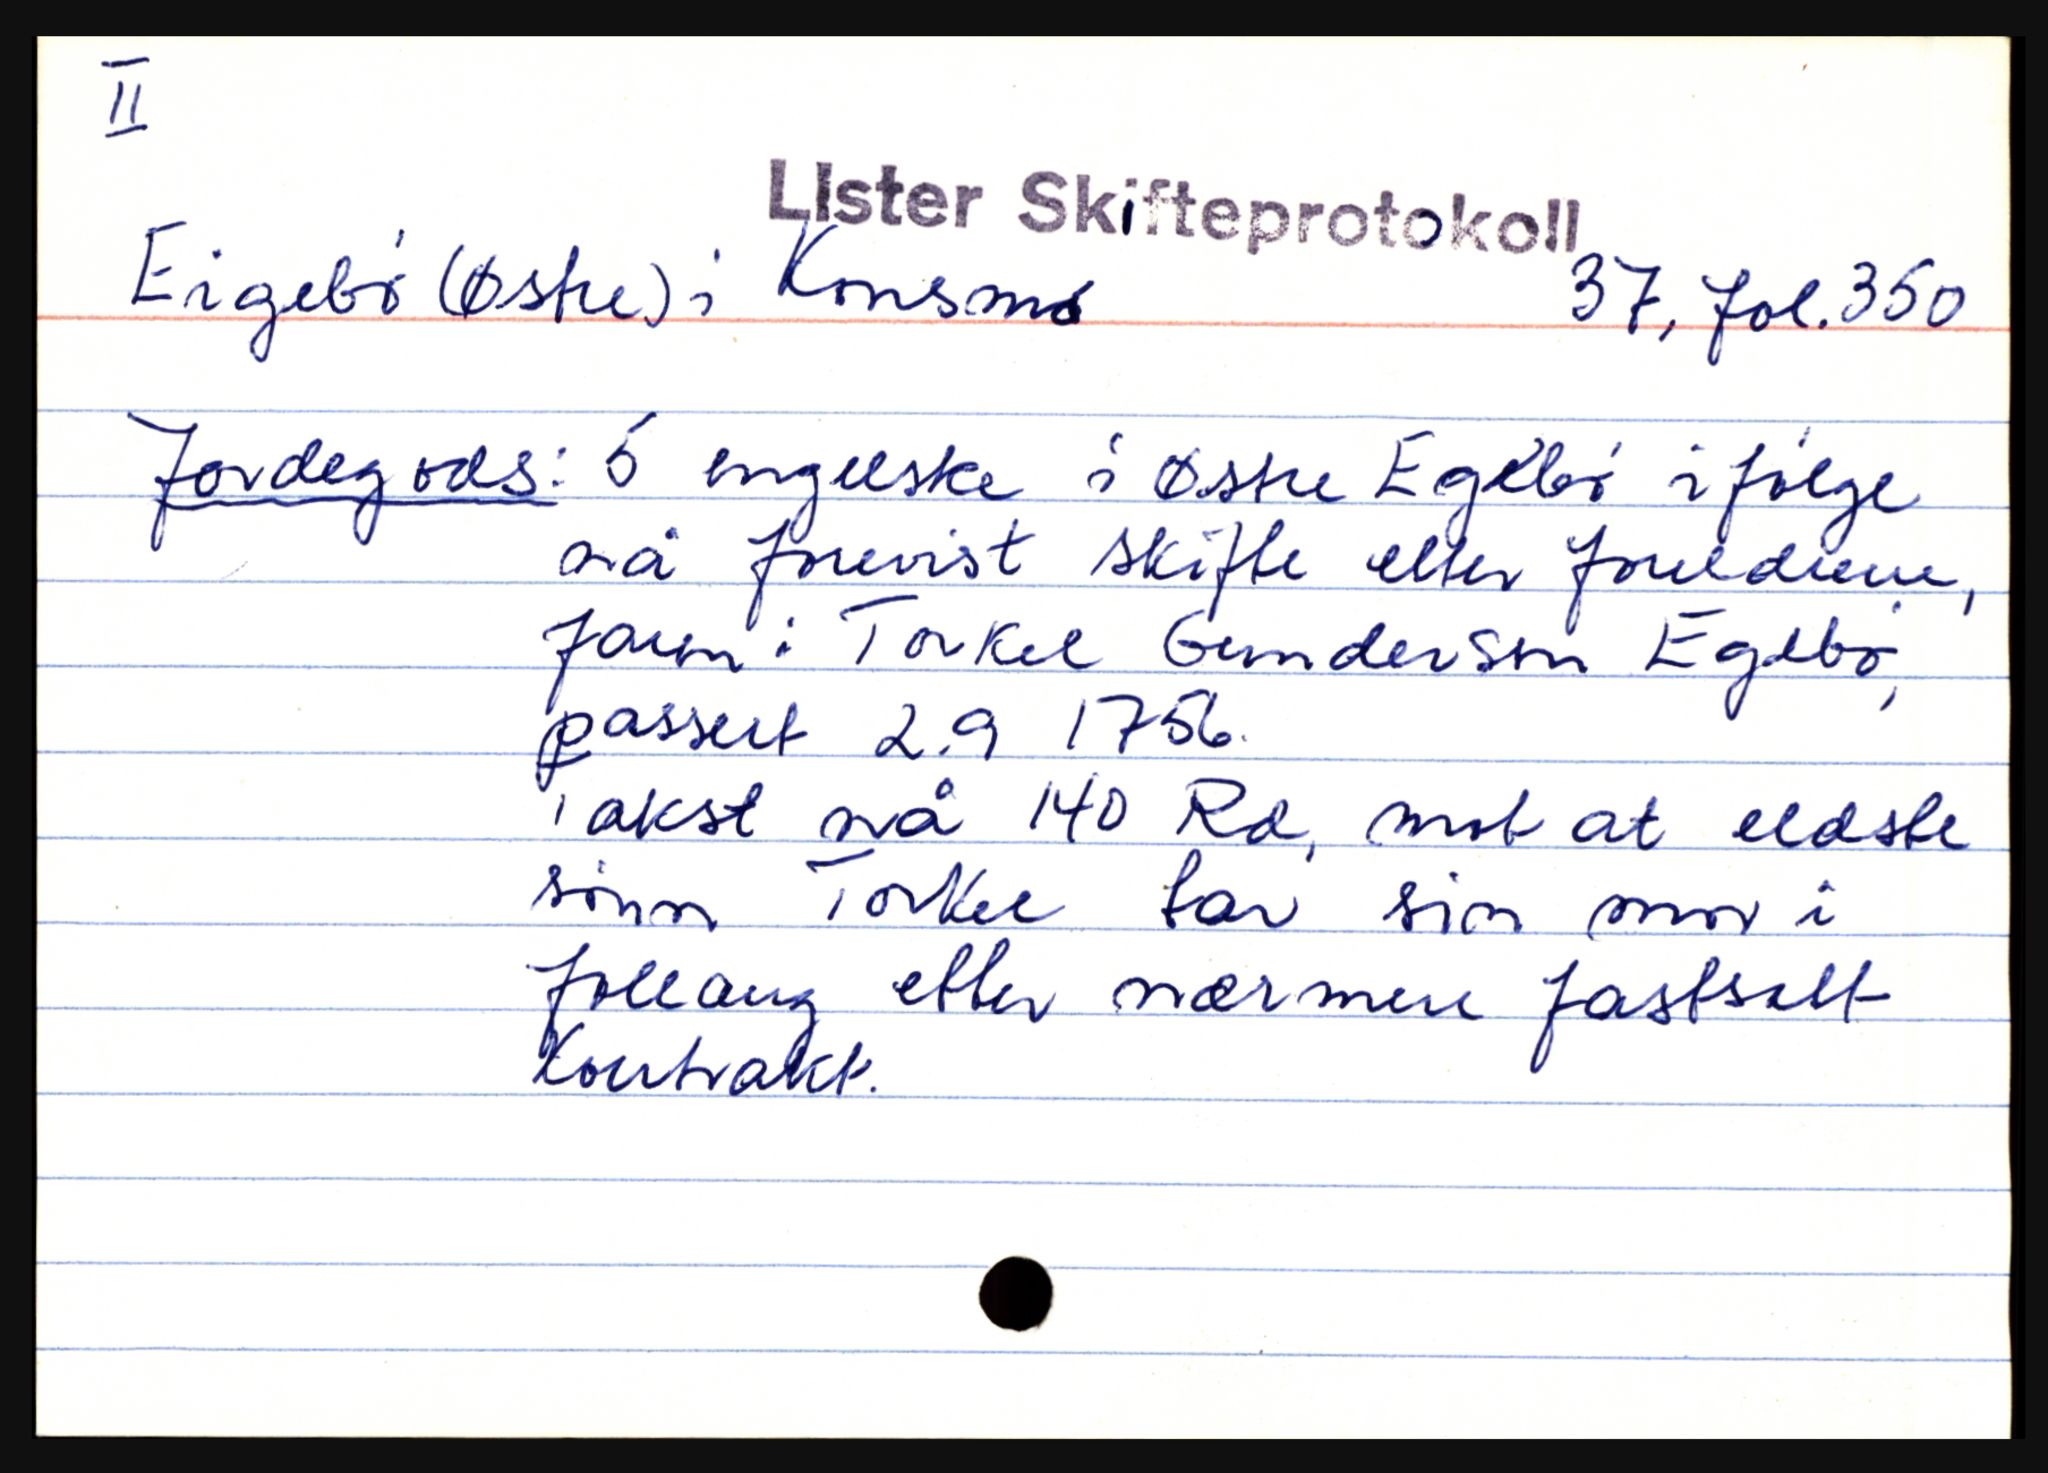 II
LIster Skifteprotokoll
Eigebó (Østre) i Konsmo 37, fol. 350
Jordegods: 5 engelske i Østre Egebó ifólge
nå forevist skifte etter foreldrene,
faren: Torkel Gunderson Egebó,
passert 2.9 1756.
Takst nå 140 Rd, mot at eldste
sónn Torkel tar sin mor i
follaug etter nærmere fastsatt
Kontrakt.